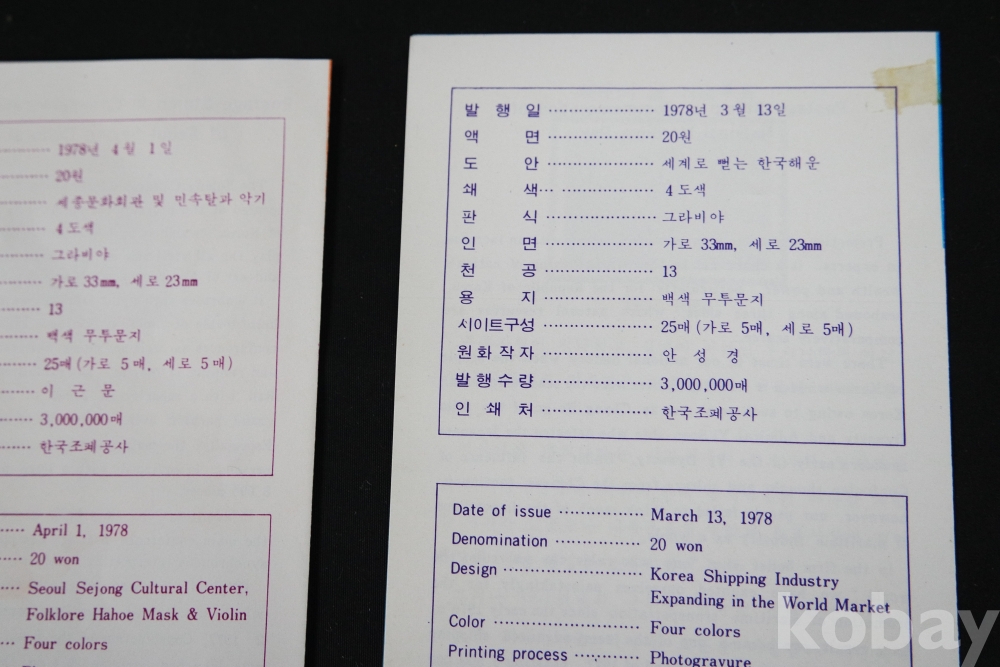 1978년 4월 1일
20원
세종문화회관 및 민속탈과 악기
4도색
그라비야
가로 33mm, 세로 23mm
13
백색 무투문지
25매(가로 5매, 세로 5매)
이 근 문
3,000,000매
한국조폐공사
April 1, 1978
20 won
Seoul Sejong Cultural Center,
Folklore Hahoe Mask & Violin
Four colors
발 행 일 ⋯⋯ 1978년 3월 13일
액 면 ⋯⋯ 20원
도 안 ⋯⋯ 세계로 뻗는 한국해운
쇄 색⋯ ⋯⋯ 4도색
판 식 ⋯⋯ 그라비야
인 면 ⋯⋯ 가로 33mm, 세로 23mm
천 공 ⋯⋯ 13
용 지 ⋯⋯ 백색 무투문지
시이트구성 ⋯⋯ 25매(가로 5매, 세로 5매)
원화작자 ⋯⋯ 안 성 경
발행수량 ⋯⋯ 3,000,000매
인 쇄 처 ⋯⋯ 한국조폐공사
Date of issue ⋯⋯ March 13, 1978
Denomination ⋯⋯ 20 won
Design ⋯⋯ Korea Shipping Industry
Expanding in the World Market
Color ⋯⋯ Four colors
Printing process ⋯⋯ Photogravure
kobay